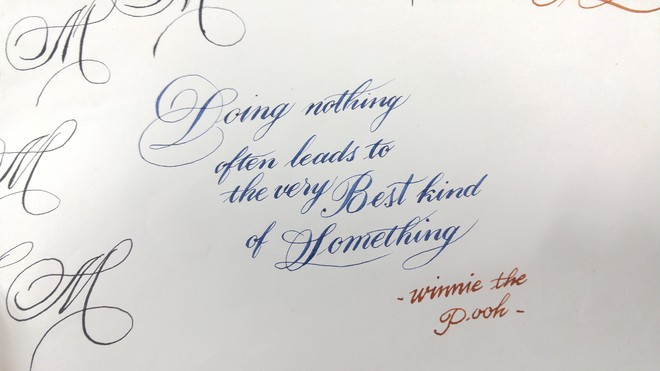 M
M
M
Doing nothing
often leads to
the very Best kind
of Something
- winnie the
P.ooh -